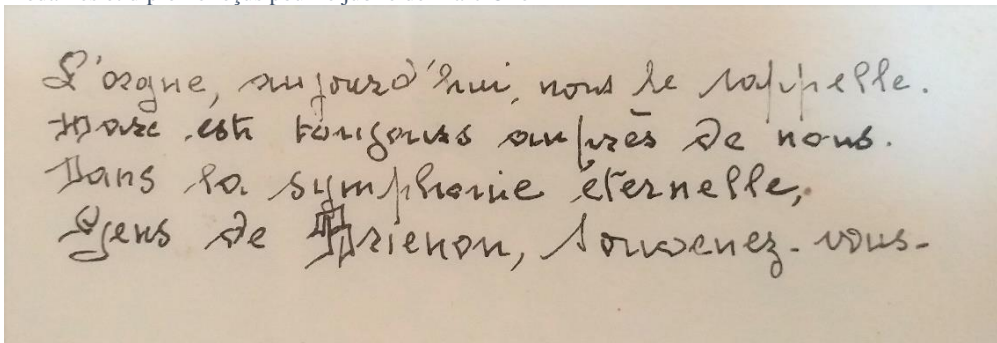 L'orgue, aujourd'hui, nous le rappelle.
Marc est toujours auprès de nous.
Dans la symphonie éternelle,
Gens de Brienon, souvenez-vous-